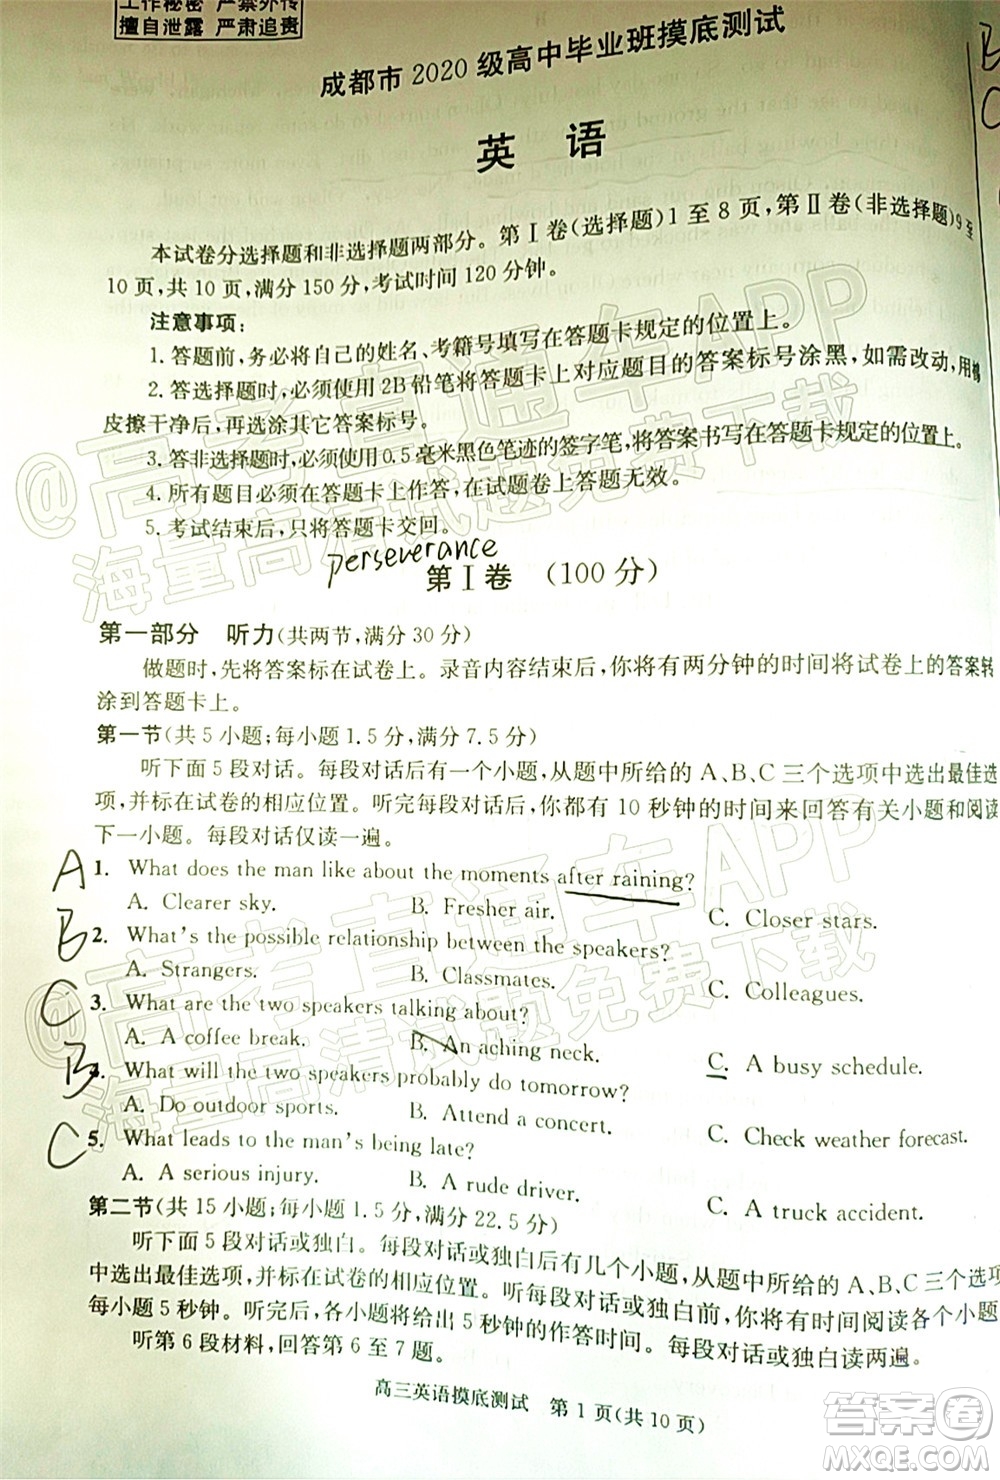 工作秘密 严禁外传
擅自泄露 严肃追责
成都市 2020 级高中毕业班摸底测试
英 语
本试卷分选择题和非选择题两部分。第Ⅰ卷(选择题)1 至 8 页,第Ⅱ卷(非选择题)9 至
10 页,共 10 页,满分 150 分,考试时间 120 分钟。
注意事项:
1. 答题前,务必将自己的姓名、考籍号填写在答题卡规定的位置上。
2. 答选择题时,必须使用 2B 铅笔将答题卡上对应题目的答案标号涂黑,如需改动,用橡
皮擦干净后,再选涂其它答案标号。
3. 答非选择题时,必须使用 0.5 毫米黑色笔迹的签字笔,将答案书写在答题卡规定的位置上。
4. 所有题目必须在答题卡上作答,在试题卷上答题无效。
5. 考试结束后,只将答题卡交回。
perseverance
第Ⅰ卷 (100 分)
第一部分 听力(共两节,满分 30 分)
做题时,先将答案标在试卷上。录音内容结束后,你将有两分钟的时间将试卷上的答案转
涂到答题卡上。
第一节(共 5 小题;每小题 1.5 分,满分 7.5 分)
听下面 5 段对话。每段对话后有一个小题,从题中所给的 A、B、C 三个选项中选出最佳选
项,并标在试卷的相应位置。听完每段对话后,你都有 10 秒钟的时间来回答有关小题和阅读
下一小题。每段对话仅读一遍。
A 1. What does the man like about the moments after raining?
A. Clearer sky. B. Fresher air. C. Closer stars.
B 2. What's the possible relationship between the speakers?
A. Strangers. B. Classmates. C. Colleagues.
C 3. What are the two speakers talking about?
A. A coffee break. B. An aching neck. C. A busy schedule.
B 4. What will the two speakers probably do tomorrow?
A. Do outdoor sports. B. Attend a concert. C. Check weather forecast.
C 5. What leads to the man's being late?
A. A serious injury. B. A rude driver. C. A truck accident.
第二节(共 15 小题;每小题 1.5 分,满分 22.5 分)
听下面 5 段对话或独白。每段对话或独白后有几个小题,从题中所给的 A、B、C 三个选项
中选出最佳选项,并标在试卷的相应位置。听每段对话或独白前,你将有时间阅读各个小题,
每小题 5 秒钟。听完后,各小题将给出 5 秒钟的作答时间。每段对话或独白读两遍。
听第 6 段材料,回答第 6 至 7 题。
高三英语摸底测试 第 1 页(共 10 页)
@高考直通车APP
海量高清试题免费下载
@高考直通车APP
海量高清试题免费下载
答案卷
MXQE.COM
B
C